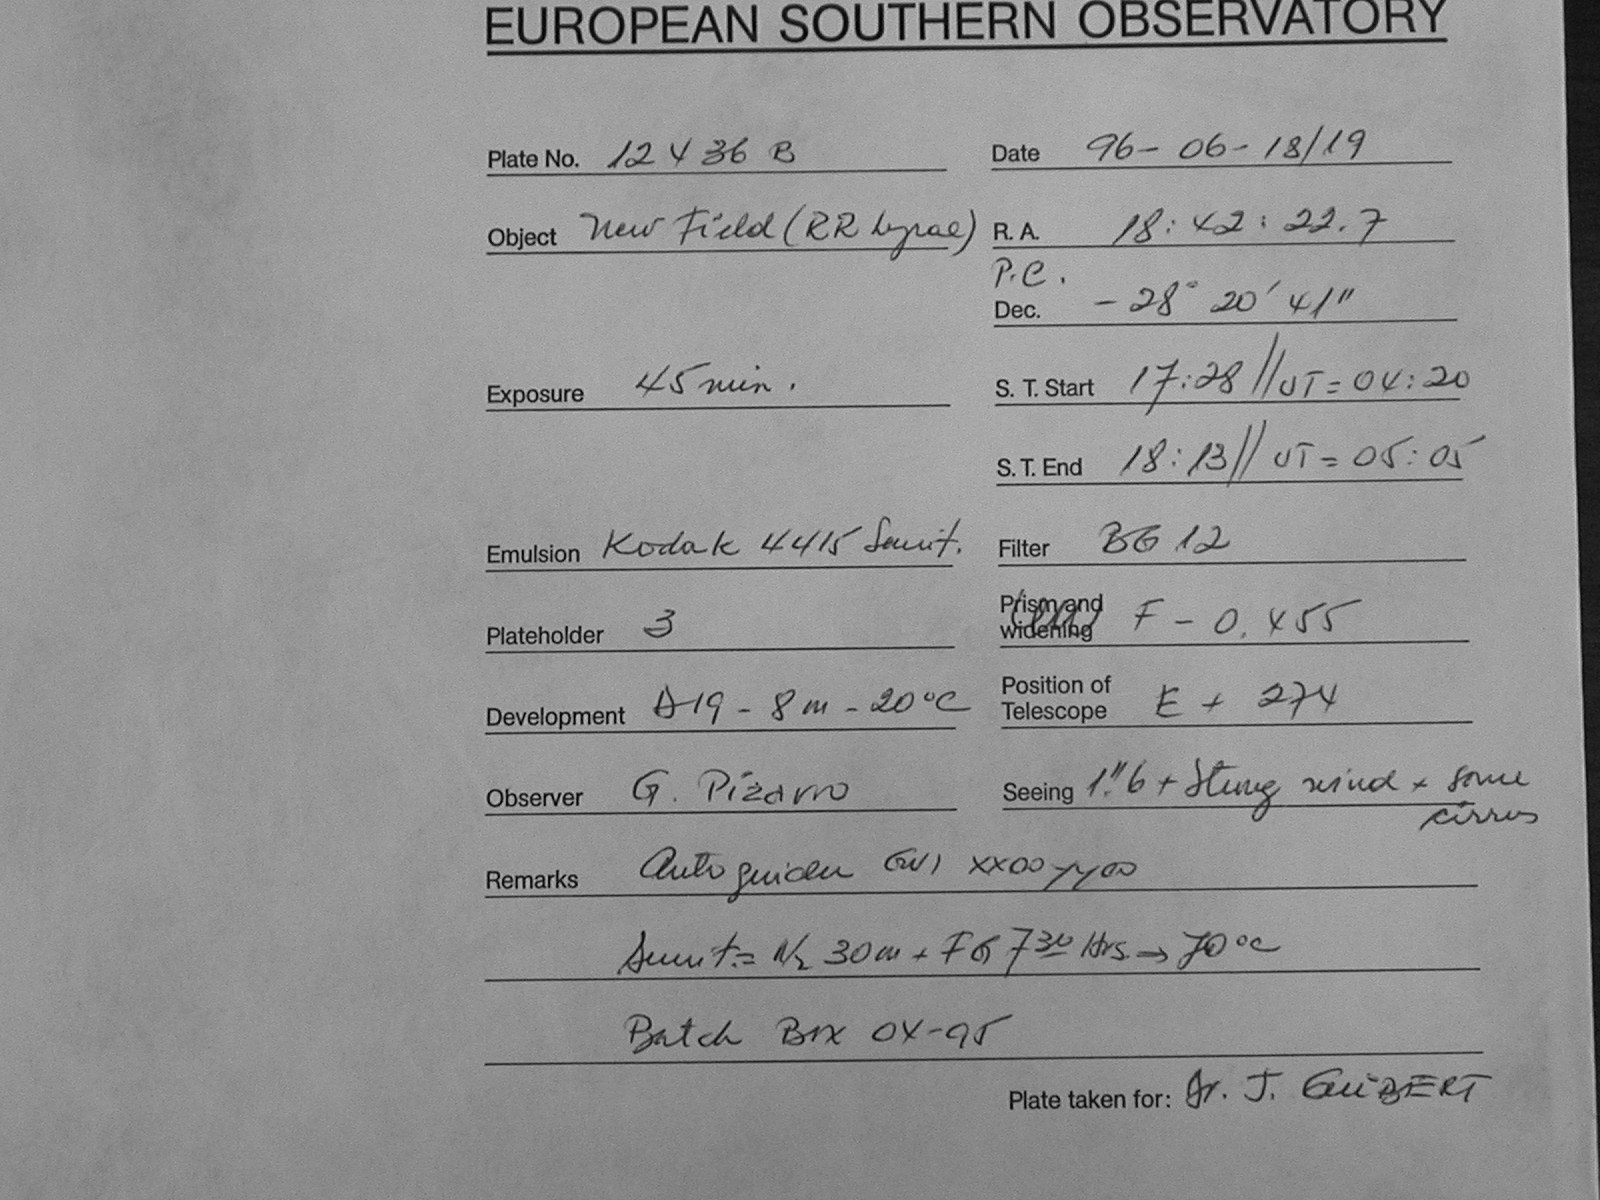 EUROPEAN SOUTHERN OBSERVATORY
Plate No. 12436 B
Date 96-06-18/19
Object New Field (RR Lyrae)
R. A. 18:42:22.7
P.C.
Dec. -28° 20' 41"
Exposure 45 min.
S. T. Start 17:28 // UT = 04:20
S. T. End 18:13 // UT = 05:05
Emulsion Kodak 4415 Sensit.
Filter BG 12
Plateholder 3
Prism and widening F - 0.455
Development D19 - 8m - 20°C
Position of Telescope E + 274
Observer G. Pizarro
Seeing 1".6 + Strong wind + some cirrus
Remarks Autoguider xx00yy00
N2 30m + FG 7 30 Hrs. → 70°C
Batch Box 04-95
Plate taken for: Dr. J. GUIBERT